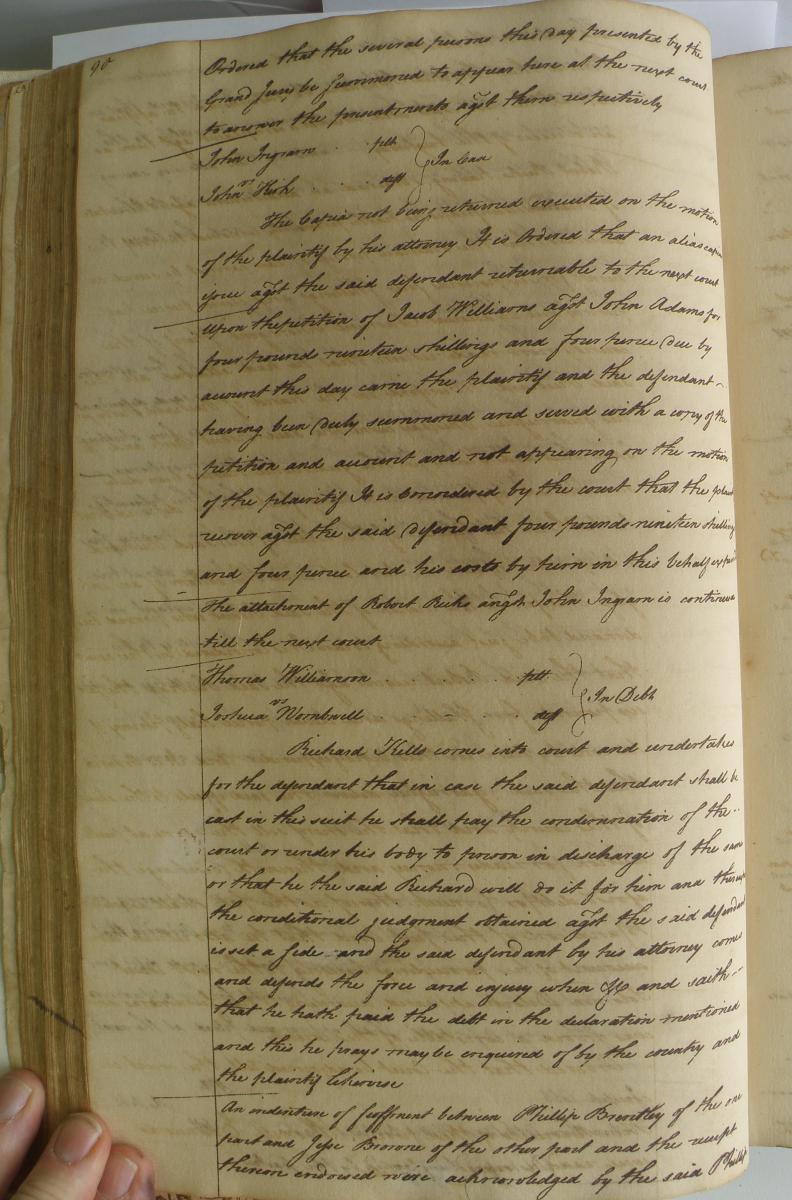 90
Ordered that the several persons this day presented by the
Grand Jury be summoned to appear here at the next court
to answer the presentments agst them respectively
John Ingram . . plt
vs } In Case
John Kish . . . . deft
The Capias not being returned executed on the motion
of the plaintif by his attorney It is Ordered that an alias capias
issue agst the said defendant returnable to the next court
Upon the petition of Jacob Williams agst John Adams for
four pound nineteen shillings and four pence due by
account this day came the plaintif and the defendant
having been duly summoned and served with a copy of the
petition and account and not appearing on the motion
of the plaintif It is Considered by the court that the
recover agst the said defendant four pounds nineteen shillings
and four pence and his costs by him in this behalf
The attachment of Robert Ricks angst John Ingram is continued
till the next court
Thomas Williamson . . . . . . plt
vs } In Debt
Joshua Wombwell . . - . . . deft
Richard Kello comes into court and undertakes
for the defendant that in case the said defendant shall be
cast in this suit he shall pay the condemnation of the
court or render his body to prison in discharge of the same
or that he the said Richard will do it for him and thereupon
the conditional judgment obtained agst the said defendant
is set a side and the said defendant by his attorney comes
and defends the force and injury when &c and saith
that he hath paid the debt in the declaration mentioned
and this he prays may be enquired of by the country and
the plaintif likewise
An indenture of feoffment between Phillip Brantley of the one
part and Jesse Browne of the other part and the receipt
thereon endorsed were acknowledged by the said Phillip